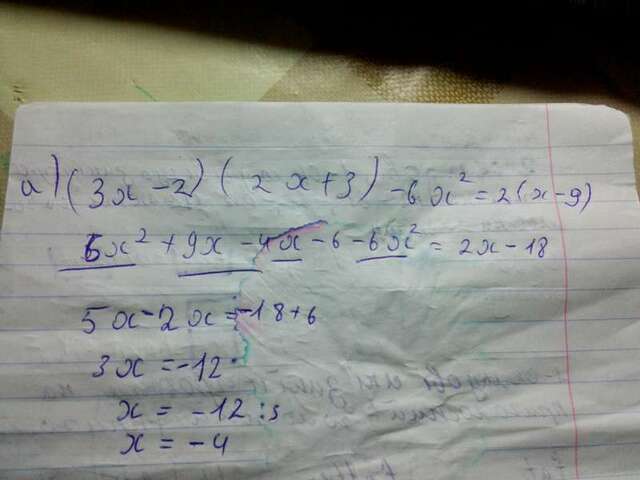 а) (3x - 2) (2x + 3) - 6x² = 2(x - 9)
6x² + 9x - 4x - 6 - 6x² = 2x - 18
5x - 2x = -18 + 6
3x = -12
x = -12 : 3
x = -4